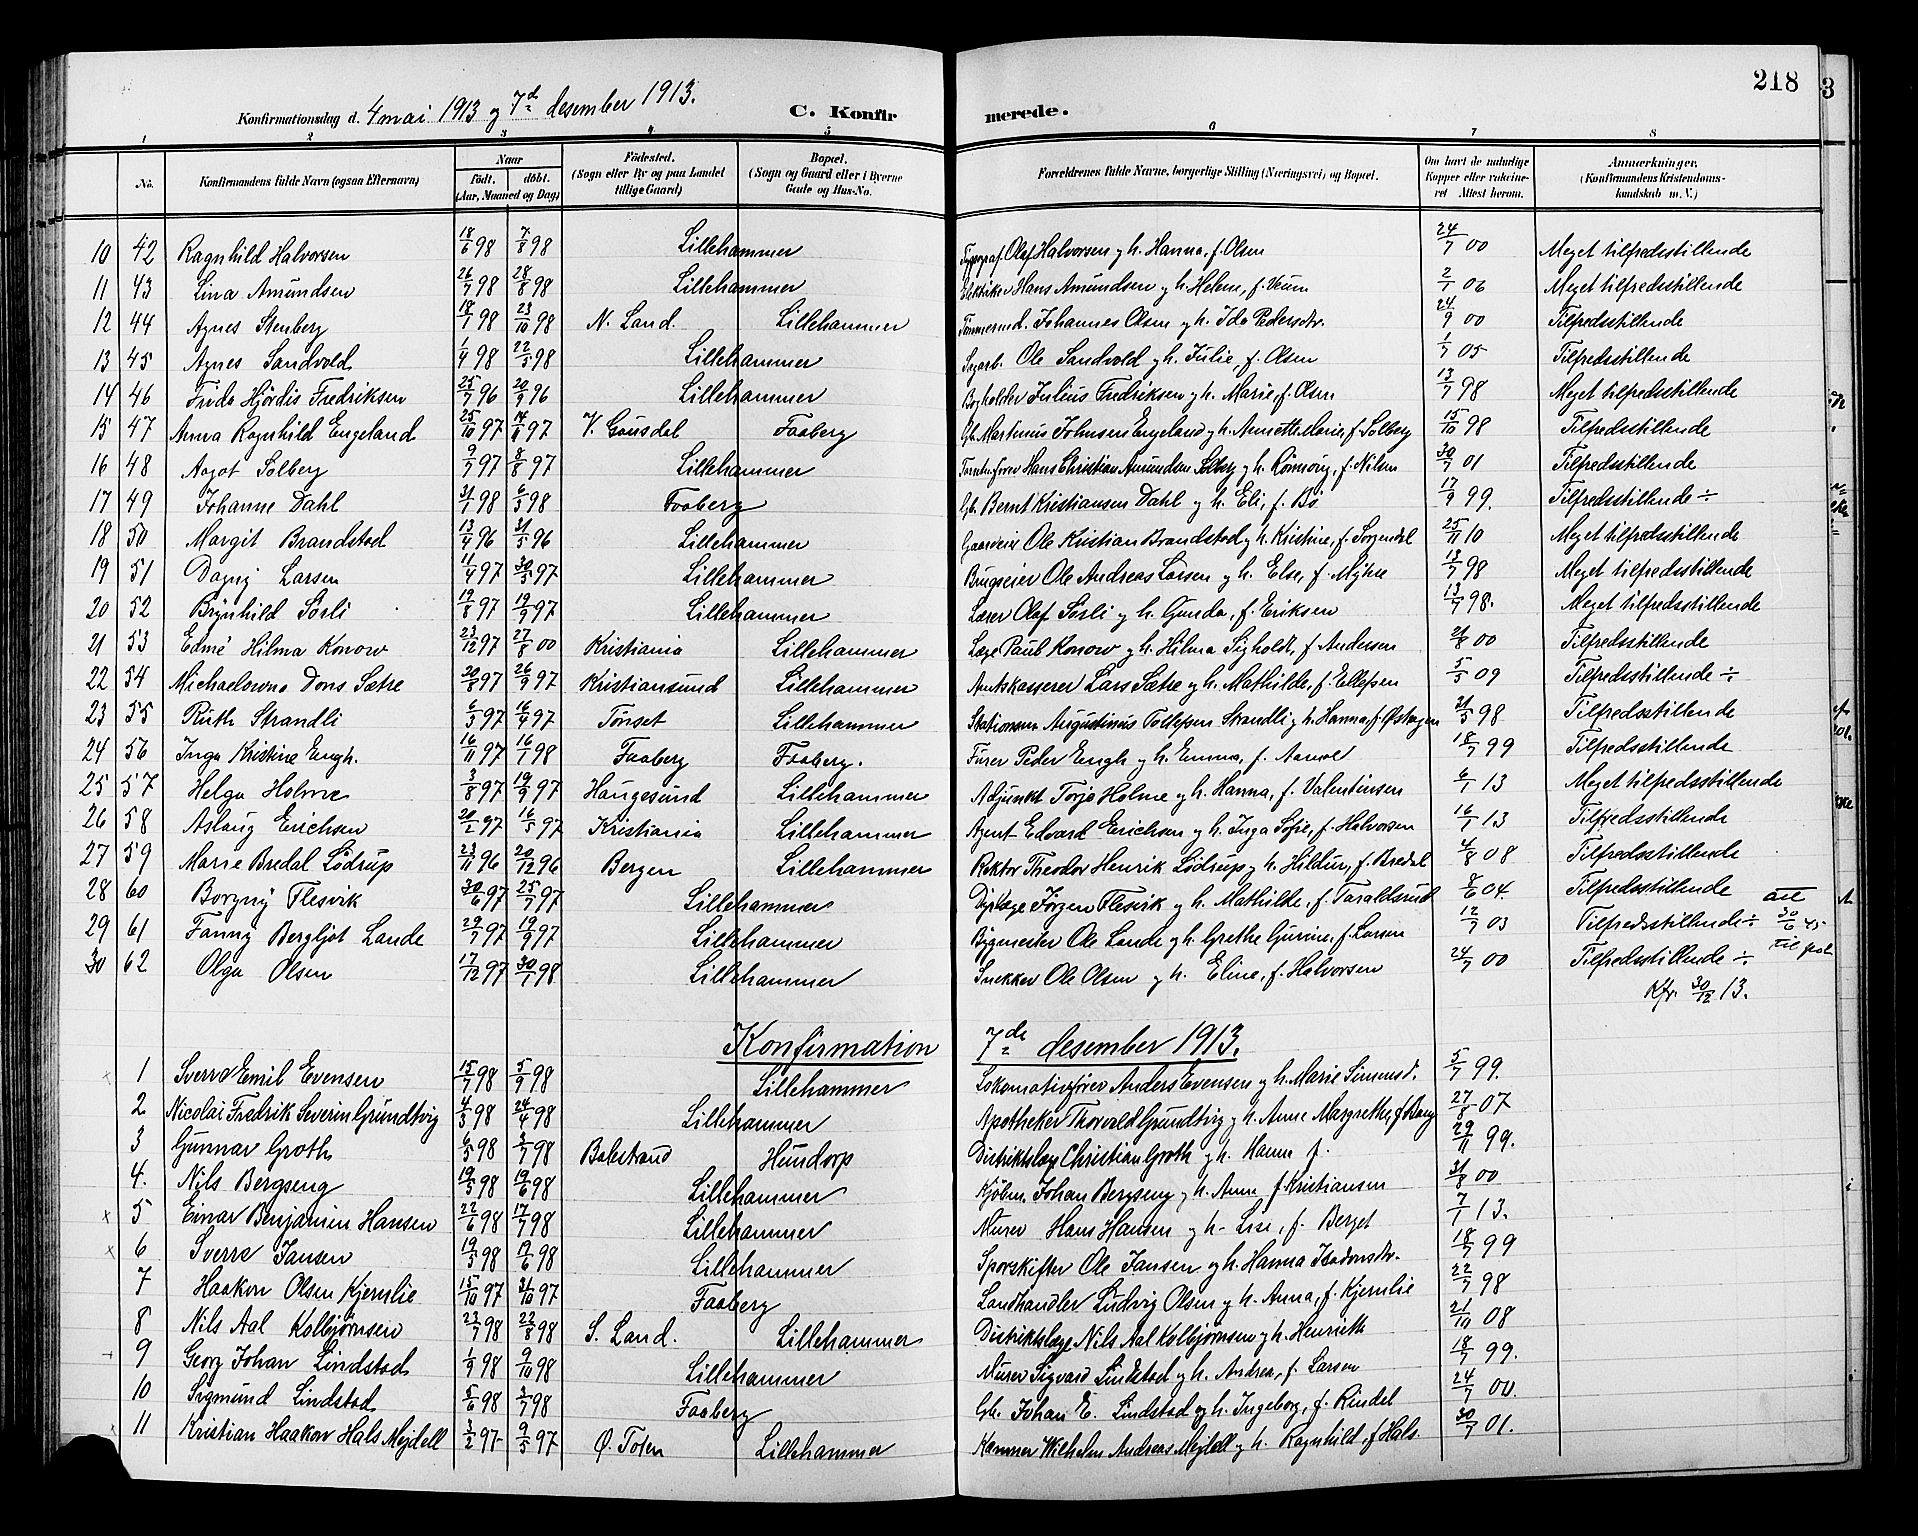 218
Konfirmationsdag d. 4 mai 1913 og 7de desember 1913. C. Konfirmerede.
1 2 3 4 5 6 7 8
No. Konfirmandens fulde Navn (ogsaa Efternavn)
Naar Födt. döbt. (Aar, Maaned og Dag)
Födested. (Sogn eller By og paa Landet tillige Gaard)
Bopæl. (Sogn og Gaard eller i Byerne Gade og Hus-No.
Forældrenes fulde Navne, borgerlige Stilling (Næringsvei) og Bopæl.
Om havt de naturlige Kopper eller vaccineret. Attest herom.
Anmærkninger. (Konfirmandens Kristendomskundskab m. V.)
10 42 Ragnhild Halvorsen 18/6 98 7/8 98 Lillehammer Typograf Olaf Halvorsen og h. Hanna, f. Olsen 24/7 00 Meget tilfredsstillende
11 43 Lina Amundsen 26/7 98 28/8 98 Lillehammer Hans Amundsen og h. Helene, f. Veum 2/1 06 Meget tilfredsstillende
12 44 Agnes Stenberg 18/7 98 23/10 98 N. Land. Lillehammer Tømmermd. Johannes Olsen og h. Ida Pedersdtr. 24/9 00 Tilfredsstillende
13 45 Agnes Sandvold 1/4 98 22/5 98 Lillehammer Ole Sandvold og h. Julie, f. Olsen 1/7 05 Tilfredsstillende
14 46 Frida Hjördis Fredriksen 25/7 96 20/9 96 Lillehammer Bogholder Julius Fredriksen og h. Marie, f. Olsen 13/7 98 Meget tilfredsstillende
15 47 Anna Ragnhild Engeland 25/10 97 97 V. Gausdal Faaberg Gb. Martinus Johnsen Engeland og h. Annette Marie, f. Solberg 15/10 98 Tilfredsstillende
16 48 Aagot Solberg 9/7 97 8/8 97 Lillehammer Hans Christian Amundsen Solberg og h. f. Nilsen 30/7 01 Tilfredsstillende
17 49 Johanne Dahl 31/1 98 98 Faaberg Gb. Bernt Kristiansen Dahl og h. Eli, f. Bö 17/9 99. Tilfredsstillende ÷
18 50 Margit Brandstad 13/4 96 31/5 96 Lillehammer Gaardeier Ole Kristian Brandstad og h. Kristine, f. Sorgendal 25/11 10 Meget tilfredsstillende
19 51 Dagny Larsen 11/4 97 30/5 97 Lillehammer Brugseier Ole Andreas Larsen og h. Else, f. Myhre 13/7 98 Meget tilfredsstillende
20 52 Brynhild Sorli 19/8 97 19/9 97 Lillehammer Lærer Olaf Sorli og h. Gunda, f. Eriksen 13/7 98. Meget tilfredsstillende
21 53 Edmé Hilma Konow 23/12 97 27/8 00 Kristiania Lillehammer Læge Paul Konow og h. Hilma Sigholdt, f. Andersen 21/8 00 Tilfredsstillende
22 54 Michaelowna Dons Sætre 20/8 97 26/9 97 Kristiansund Lillehammer Amtskasserer Lars Sætre og h. Mathilde, f. Ellefsen 5/5 09 Tilfredsstillende ÷
23 55 Ruth Strandli 6/3 97 16/4 97 Tönset Lillehammer Stationsm. Augustinus Tollefsen Strandli og h. Hanna, f. Østhagen 21/5 98 Tilfredsstillende
24 56 Inga Kristine Engh. 16/11 97 16/1 98 Faaberg Faaberg. Furer Peder Engh og h. Emma, f. 18/7 99 Tilfredsstillende
25 57 Helga Holme 3/8 97 19/9 97 Haugesund Lillehammer Adjunkt Torje Holme og h. Hanna, f. Valentinsen 6/1 13 Meget tilfredsstillende
26 58 Aslaug Erichsen 20/2 97 16/5 97 Kristiania Lillehammer Agent Edvard Erichsen og h. Inga Sofie, f. Halvorsen 16/1 13 Tilfredsstillende
27 59 Marie Bredal Lödrup 23/11 96 20/12 96 Bergen Lillehammer Rektor Theodor Henrik Lödrup og h. Hildur, f. Bredal 4/8 08 Tilfredsstillende
28 60 Borgny Flesvik 30/6 97 25/7 97 Lillehammer Dyrlæge Jörgen Flesvik og h. Mathilde, f. Taraldsrud 8/6 04. Tilfredsstillende
29 61 Fanny Bergljot Lande 29/7 97 19/9 97 Lillehammer Bygmester Ole Lande og h. Grethe Gurine, f. Larsen 12/7 03 Tilfredsstillende ÷ att 30/6 45
30 62 Olga Olsen 17/12 97 30/1 98 Lillehammer Snekker Ole Olsen og h. Eline, f. Halvorsen 24/7 00 Tilfredsstillende ÷
Kfr. 30/12 13.
Konfirmation 7de desember 1913.
1 Sverre Emil Evensen 15/7 98 5/9 98 Lillehammer Lokomotivförer Anders Evensen og h. Marie Simensd. 5/7 99.
2 Nicolai Fredrik Severin Grundtvig 4/3 98 24/4 98 Lillehammer Apotheker Thorvald Grundtvig og h. Anne Margrethe, f. Bang 27/8 07
3 Gunnar Groth 6/5 98 3/7 98 Balestrand Hundorp Distriktslæge Christian Groth og h. Hanna f. 29/11 99.
4. Nils Bergseng 19/3 98 19/6 98 Lillehammer Kjöbm. Johan Bergseng og h. Anne f. Kristiansen 31/8 00
x 5 Einar Benjamin Hansen 22/6 98 17/7 98 Lillehammer Murer Hans Hansen og h. Lise, f. Berget 7/7 13.
x 6 Sverre Jansen 19/5 98 19/6 98 Lillehammer Sporskifter Ole Jansen og h. Hanna Isdorsdtr. 18/7 99
7 Haakon Olsen Kjernlie 15/10 97 31/10 97 Faaberg Landhandler Ludvig Olsen og h. Anna, f. Kjernlie 22/7 98
8 Nils Aal Kolbjørnsen 23/7 98 22/8 98 S. Land. Lillehammer Distriktslæge Nils Aal Kolbjørnsen og h. Henriette 21/10 08
9 Georg Johan Lindstad 1/9 98 9/10 98 Lillehammer Murer Sigvard Lindstad og h. Andrea, f. Larsen 18/7 99.
10 Sigmund Lindstad 5/6 98 3/7 98 Faaberg Gb. Johan E. Lindstad og h. Ingeborg, f. Rindal 24/7 00.
x 11 Kristian Haakon Hals Mejdell 3/2 97 9/5 97 Ø. Toten Lillehammer Wilhelm Andreas Mejdell og h. Ragnhild, f. Hals. 30/7 01.